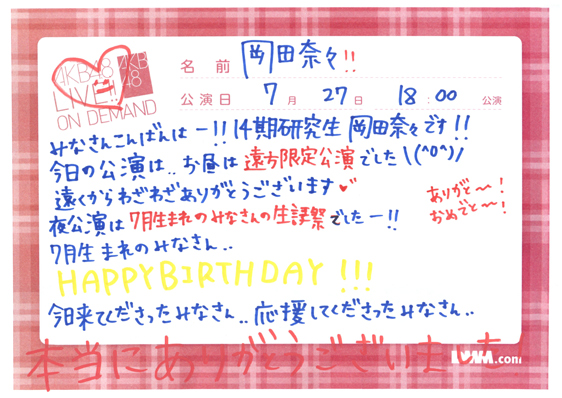 AKB48 AKB48
LIVE!!
ON DEMAND
名 前 岡田奈々!!
公演日 7月 27日 18:00 公演
みなさんこんばんはー!! 14期研究生 岡田奈々です!!
今日の公演は.. お昼は遠方限定公演でした\(^O^)/
遠くからわざわざありがとうございます
ありがと〜!
おめでと〜!
夜公演は7月生まれのみなさんの生誕祭でしたー!!
7月生まれのみなさん..
HAPPY BIRTHDAY !!!
今日来てくださったみなさん.. 応援してくださったみなさん..
本当にありがとうございました
DMM.com